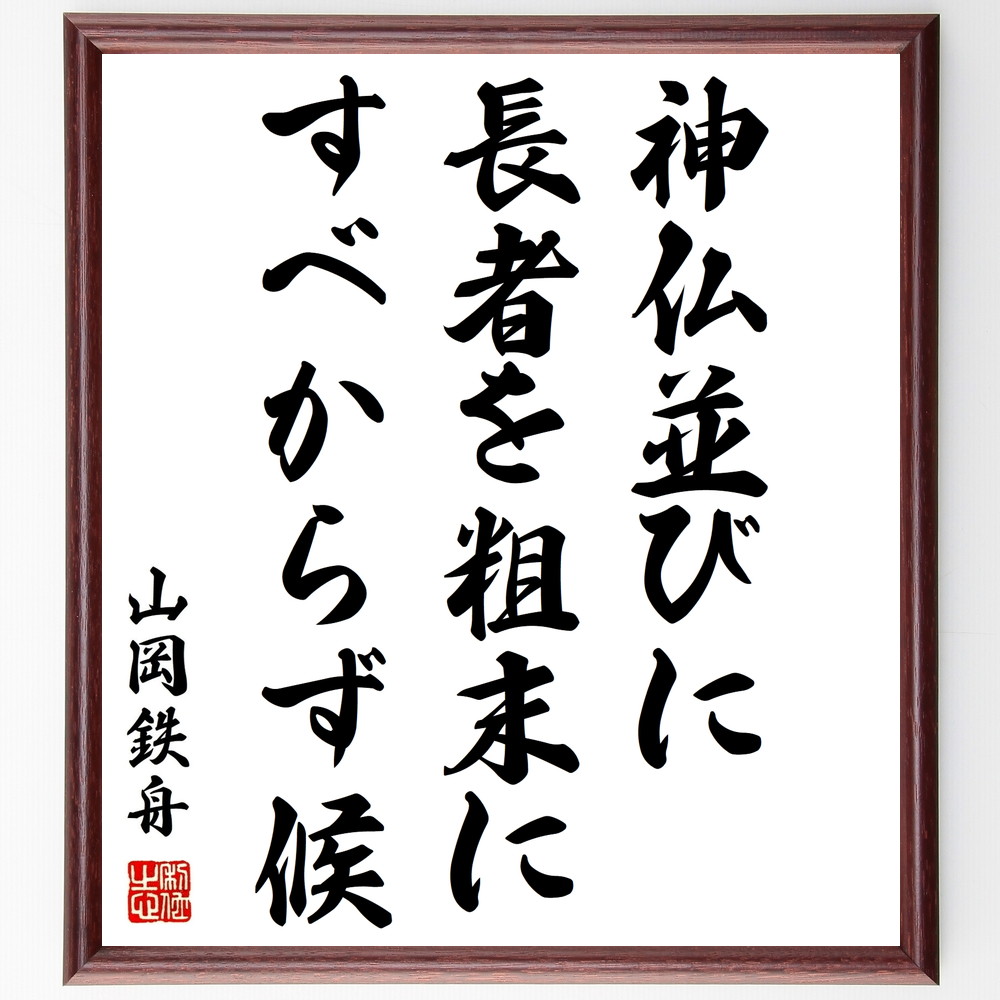 神仏並びに
長者を粗末に
すべからず候
山岡鉄舟